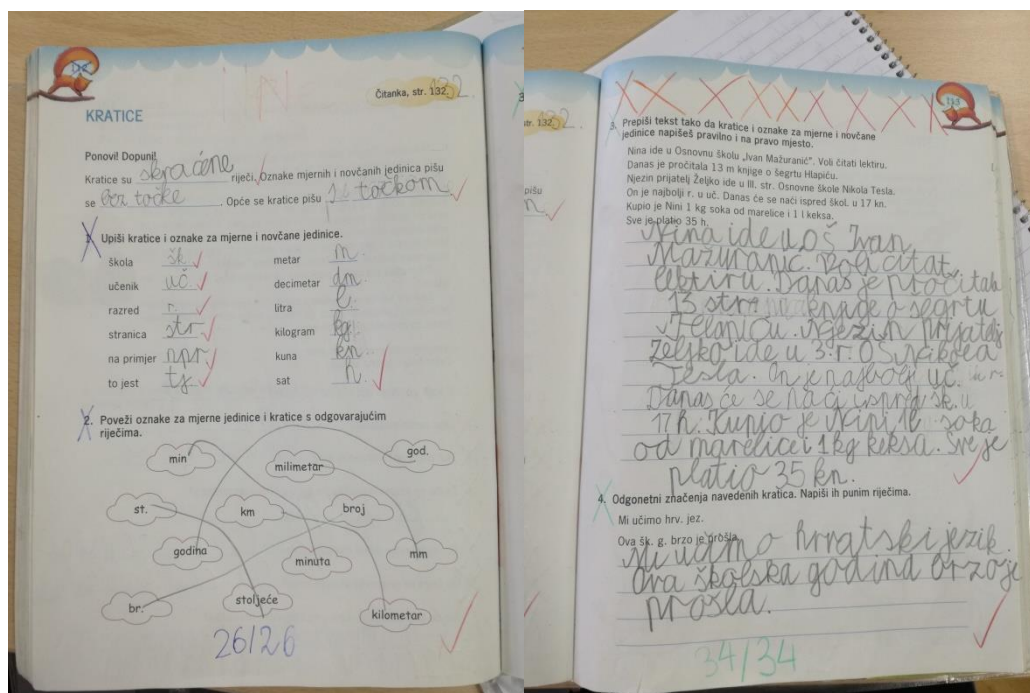 Čitanka, str. 132.
132.
KRATICE
Ponovi! Dopuni!
Kratice su skraćene riječi. Oznake mjernih i novčanih jedinica pišu
se bez točke. Opće se kratice pišu s točkom
1. Upiši kratice i oznake za mjerne i novčane jedinice.
škola šk. metar m
učenik uč. decimetar dm
razred r. litra l
stranica str. kilogram kg
na primjer npr. kuna kn
to jest tj. sat h
2. Poveži oznake za mjerne jedinice i kratice s odgovarajućim
riječima.
min milimetar god.
st. km broj
godina minuta mm
br. stoljeće kilometar
26/26
str. 132.
pišu
113
3. Prepiši tekst tako da kratice i oznake za mjerne i novčane
jedinice napišeš pravilno i na pravo mjesto.
Nina ide u Osnovnu školu „Ivan Mažuranić". Voli čitati lektiru.
Danas je pročitala 13 m knjige o šegrtu Hlapiću.
Njezin prijatelj Željko ide u III. str. Osnovne škole Nikola Tesla.
On je najbolji r. u uč. Danas će se naći ispred škol. u 17 kn.
Kupio je Nini 1 kg soka od marelice i 1 l keksa.
Sve je platio 35 h.
Nina ide u OŠ Ivan
Mažuranić. Voli čitat
lektiru. Danas je pročitala
13 str knjige o šegrtu
Hlapiću. Njezin prijatelj
Željko ide u 3. r. OŠ Nikola
Tesla. On je najbolji uč. u r.
Danas će se naći ispred šk. u
17 h. Kupio je Nini 1l soka
od marelice i 1 kg keksa. Sve je
platio 35 kn.
4. Odgonetni značenja navedenih kratica. Napiši ih punim riječima.
Mi učimo hrv. jez.
Ova šk. g. brzo je prošla.
Mi učimo hrvatski jezik.
Ova školska godina brzo je
prošla.
34/34